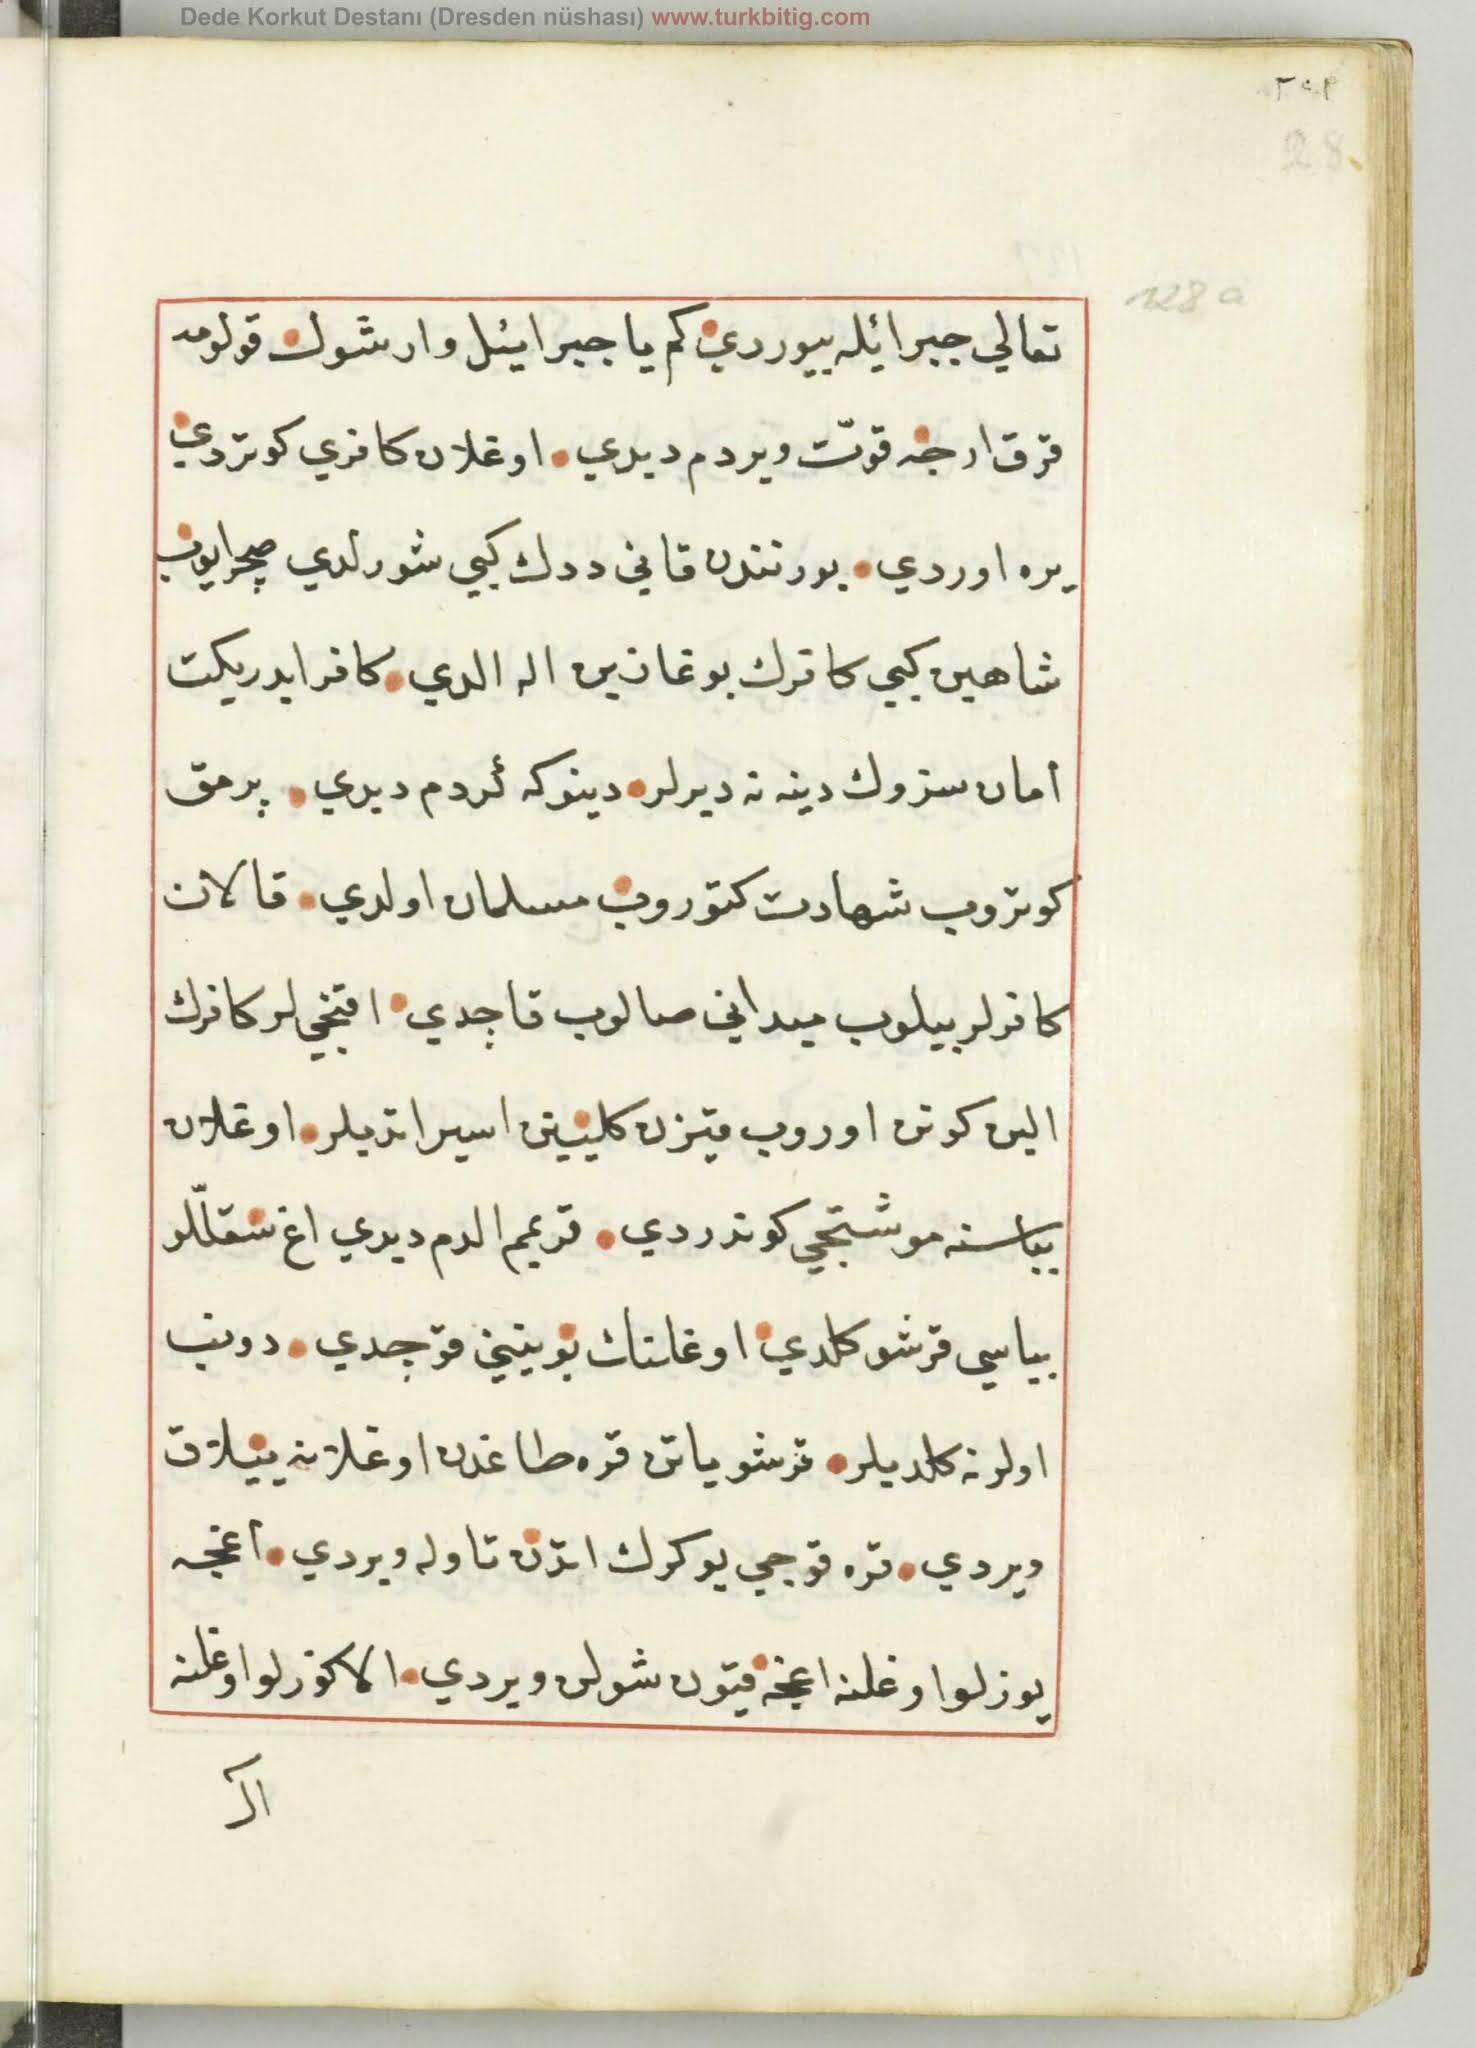 Dede Korkut Destanı (Dresden nüshası) www.turkbitig.com
28
128 a
تعالي جبرائله بيوردي كم يا جبرائيل وار شول قولومه
قرق ارجه قوّت ويردم ديدي اوغلان كافري كوتردي
يره اوردي بورنندن قاني ددك كبي شورلدي صچرايوب
شاهين كبي كافرك بوغازين اله الدي كافر ايدر يكت
امان سزوك دينه نه ديرلر دينوكه گردم ديدي پرمق
كوتروب شهادت كتوروب مسلمان اولدي قالان
كافرلر بيلوب ميداني صالوب قاچدي اقنجي لر كافرك
الين كونن اوروب قيزن كلينين اسير اتديلر اوغلان
بباسنه موشتجي كوندردي قريمم الدم ديدي اغ سقللّو
بباسي قرشو كلدي اوغلنك بوينيني قوجدي دونب
اولرنه كلديلر قرشو ياتن قره طاغدن اوغلانه ييلاق
ويردي قره قوجي يوكرك اتدن تاوله ويردي اغجه
يوزلو اوغلنه اغجه قيتون شولن ويردي الا كوزلو اوغلنه
ال